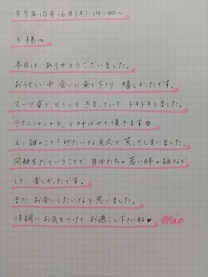 R7年10月16日(木) 14:00〜
K様へ
本日は ありがとうございました。
お忙しい中 会いに来て下さり 嬉しかったです。
スーツ姿で ビシッと きまっていて ドキドキしました。
テクニシャンのK と呼ばせて頂きます
え、誰のこと？みたいな反応で 笑ってしまいました。
同級生だということで 自分たちの若い時の話など
して、楽しかったです。
また お会いしたいなと思いました。
体調にお気をつけて お過ごし下さいね♥